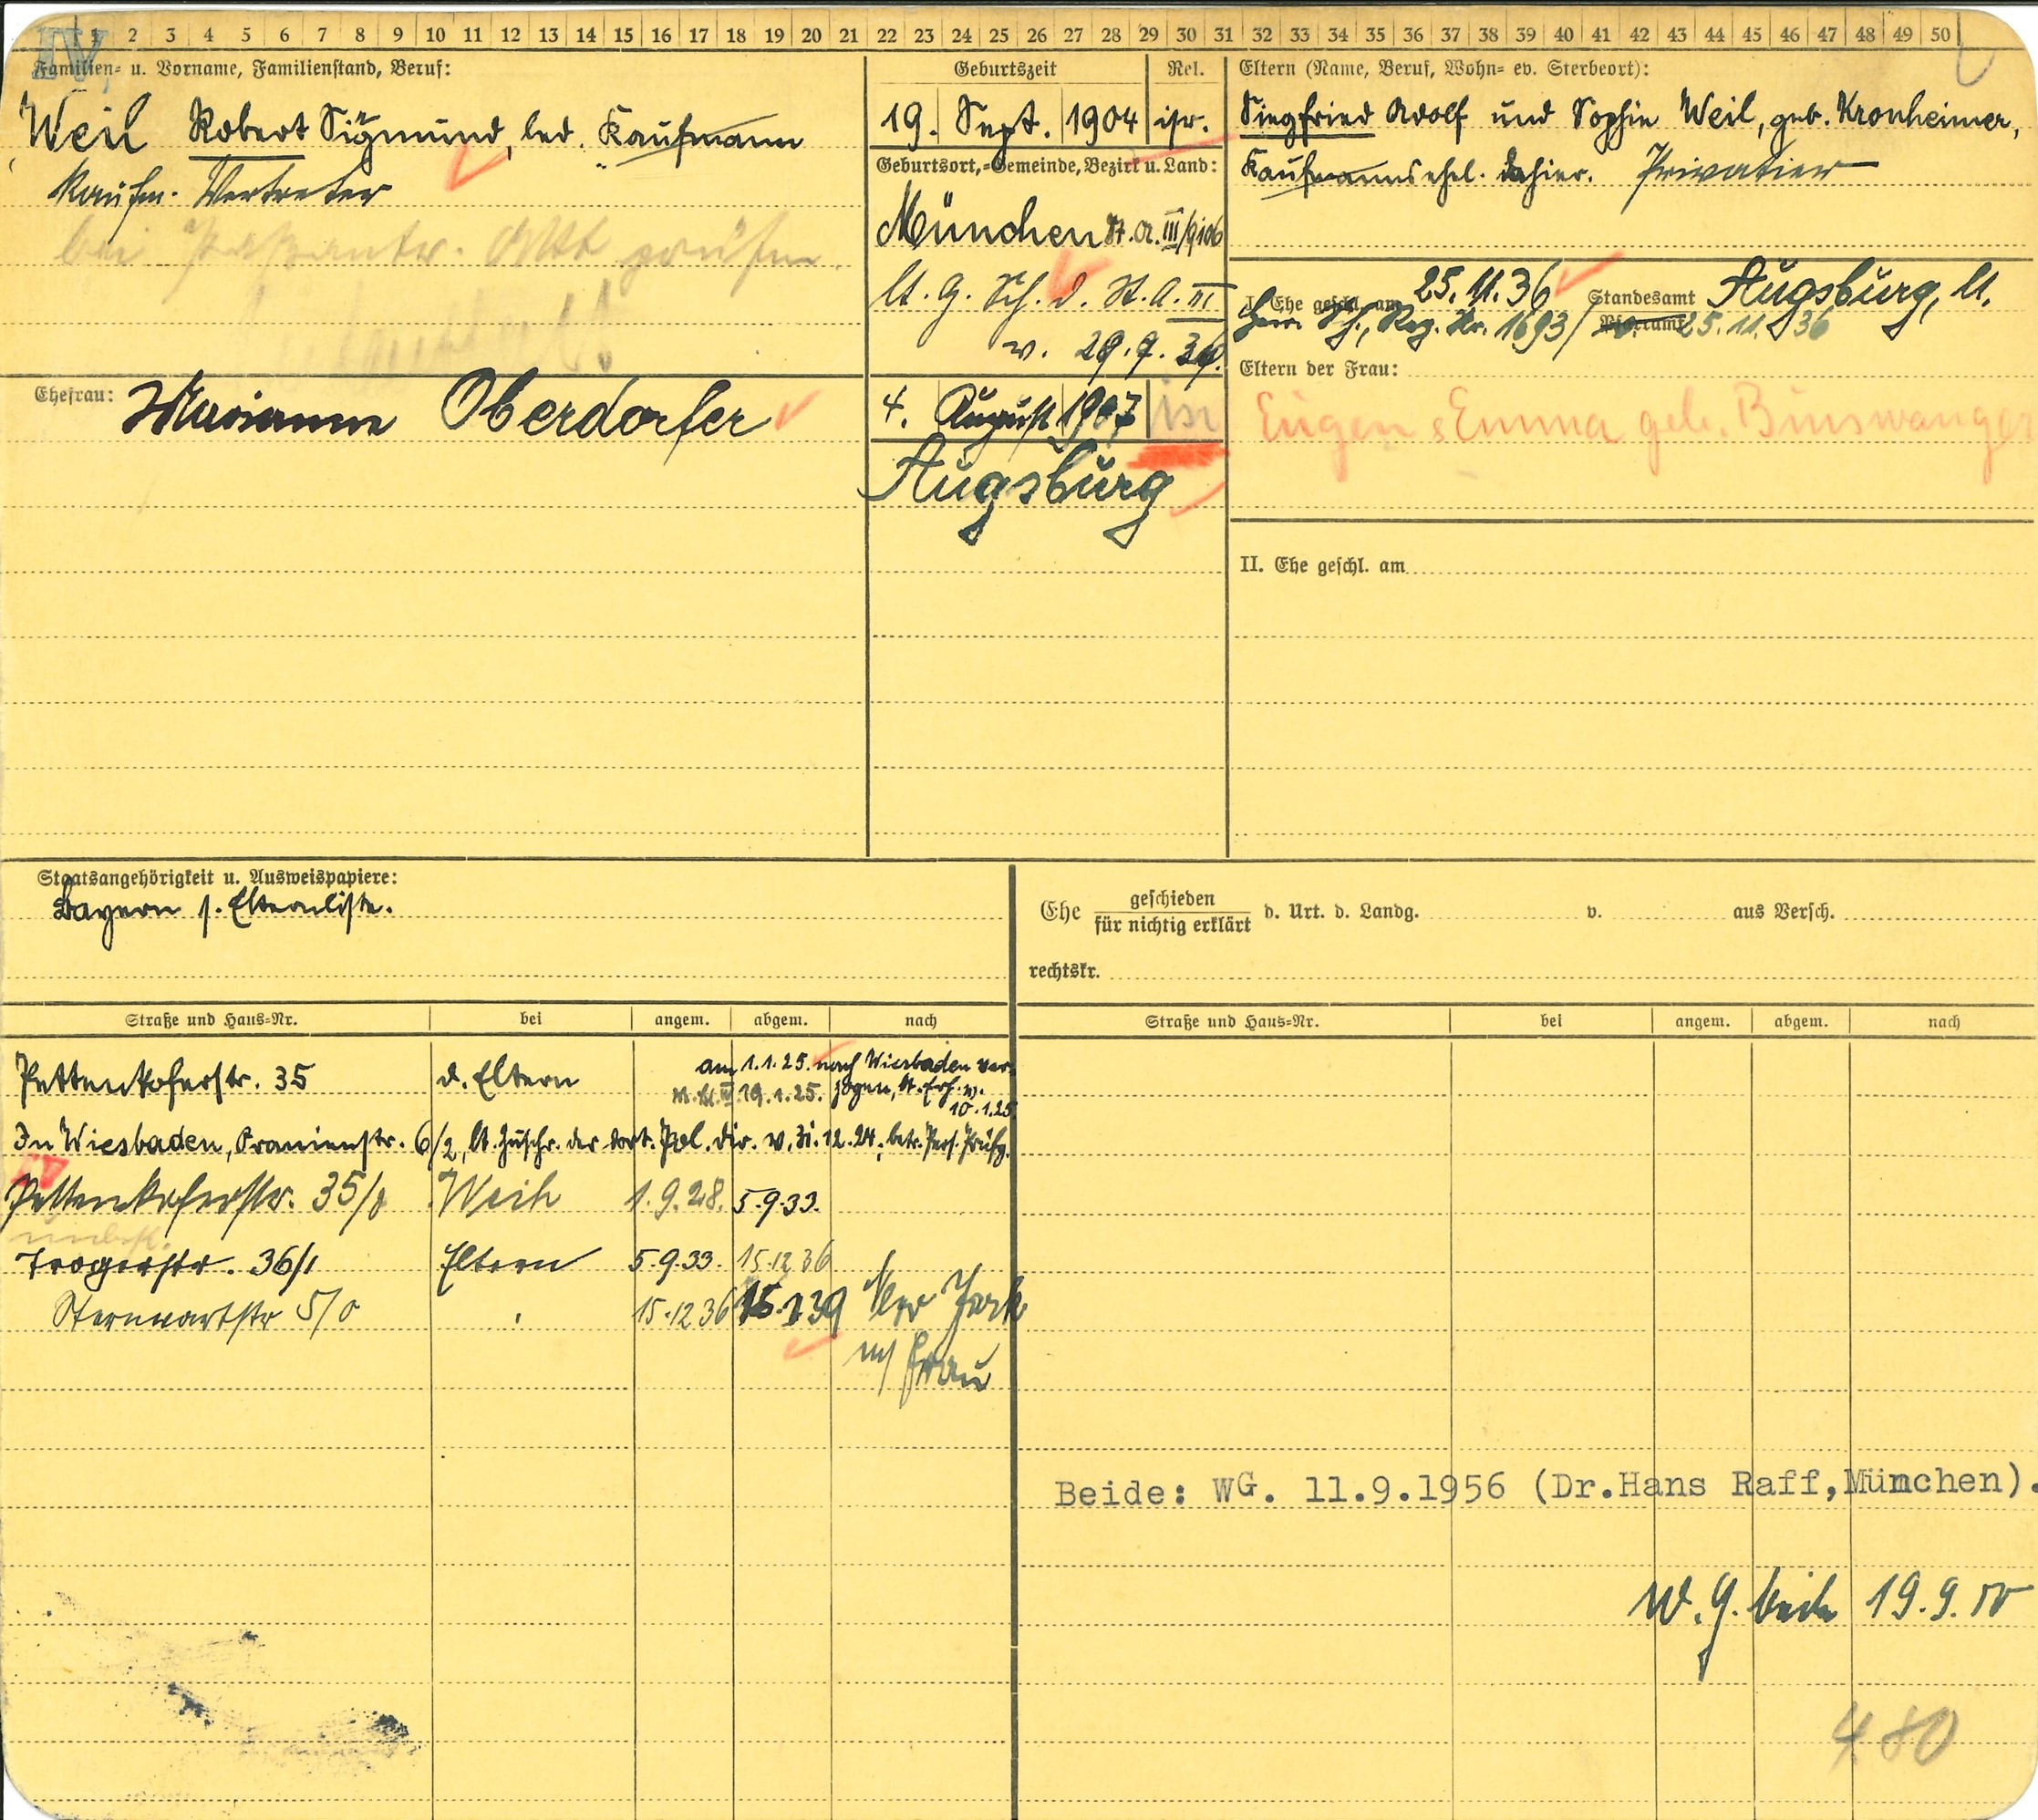 IV
1 2 3 4 5 6 7 8 9 10 11 12 13 14 15 16 17 18 19 20 21 22 23 24 25 26 27 28 29 30 31 32 33 34 35 36 37 38 39 40 41 42 43 44 45 46 47 48 49 50
Familien- u. Vorname, Familienstand, Beruf:
Weil Robert Sigmund, led. Kaufmann
Kaufm. Vertreter
bei prüfen
Geburtszeit Rel.
19. Sept. 1904 isr.
Geburtsort,-Gemeinde, Bezirk u. Land:
München St. A. III/9106
lt. G. Sch. d. St. A. III
v. 29.9.36
Eltern (Name, Beruf, Wohn- ev. Sterbeort):
Siegfried Adolf und Sophie Weil, geb. Kronheimer,
Kaufmannsehel. dahier. Privatier
I. Ehe geschl. am 25.11.36 Standesamt Augsburg, lt.
Pfarramt
Sch., Reg. Nr. 1693/ v. 25.11.36
Ehefrau: Marianne Oberdorfer
4. August 1907 isr
Augsburg
Eltern der Frau:
Eugen & Emma geb. Binswanger
II. Ehe geschl. am
Staatsangehörigkeit u. Ausweispapiere:
Bayern s. Elternliste.
Ehe geschieden
für nichtig erklärt d. Urt. d. Landg. v. aus Versch.
rechtskr.
Straße und Haus-Nr. bei angem. abgem. nach
Straße und Haus-Nr. bei angem. abgem. nach
Pettenkoferstr. 35 d. Eltern am 1.1.25. nach Wiesbaden ver-
19.1.25. zogen, lt. v.
10.1.25.
In Wiesbaden, Oranienstr. 6/2, lt. Zuschr. der dort. Pol. Dir. v. 31.12.24, betr. Pers. Prüfg.
IV
Pettenkoferstr. 35/0 Weil 1.9.28. 5.9.33.
unbek.
Trogerstr. 36/1 Eltern 5.9.33. 15.12.36
Sternwartstr 5/0 " 15.12.36 15.1.39 New York
m/ Frau
Beide: WG. 11.9.1956 (Dr.Hans Raff,München).
W. G. beide 19.9.
480